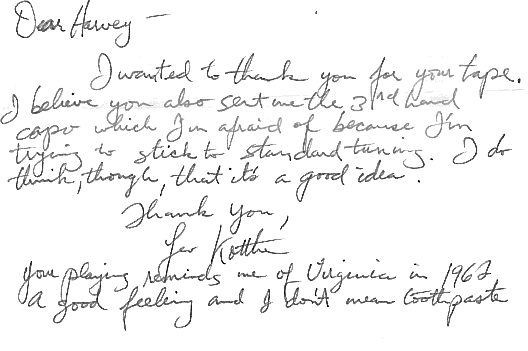 Dear Harvey —
I wanted to thank you for your tape.
I believe you also sent me the 3rd hand
capo which I'm afraid of because I'm
trying to stick to standard tuning. I do
think, though, that it's a good idea.
Thank you,
Leo Kottke
Your playing reminds me of Virginia in 1962
A good feeling and I don't mean toothpaste